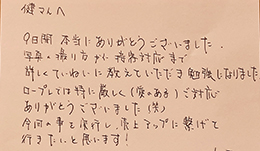 健さんへ
9日間 本当にありがとうございました。
写真の撮り方から接客対応まで
詳しくていねいに教えていただき勉強になりました
ロープレでは特に厳しく(愛のある)ご対応
ありがとうございました(笑)
今回の事を実行し、売上アップに繋げて
行きたいと思います!